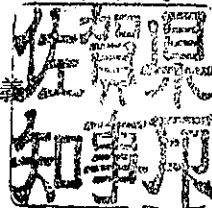 佐賀県
知事印